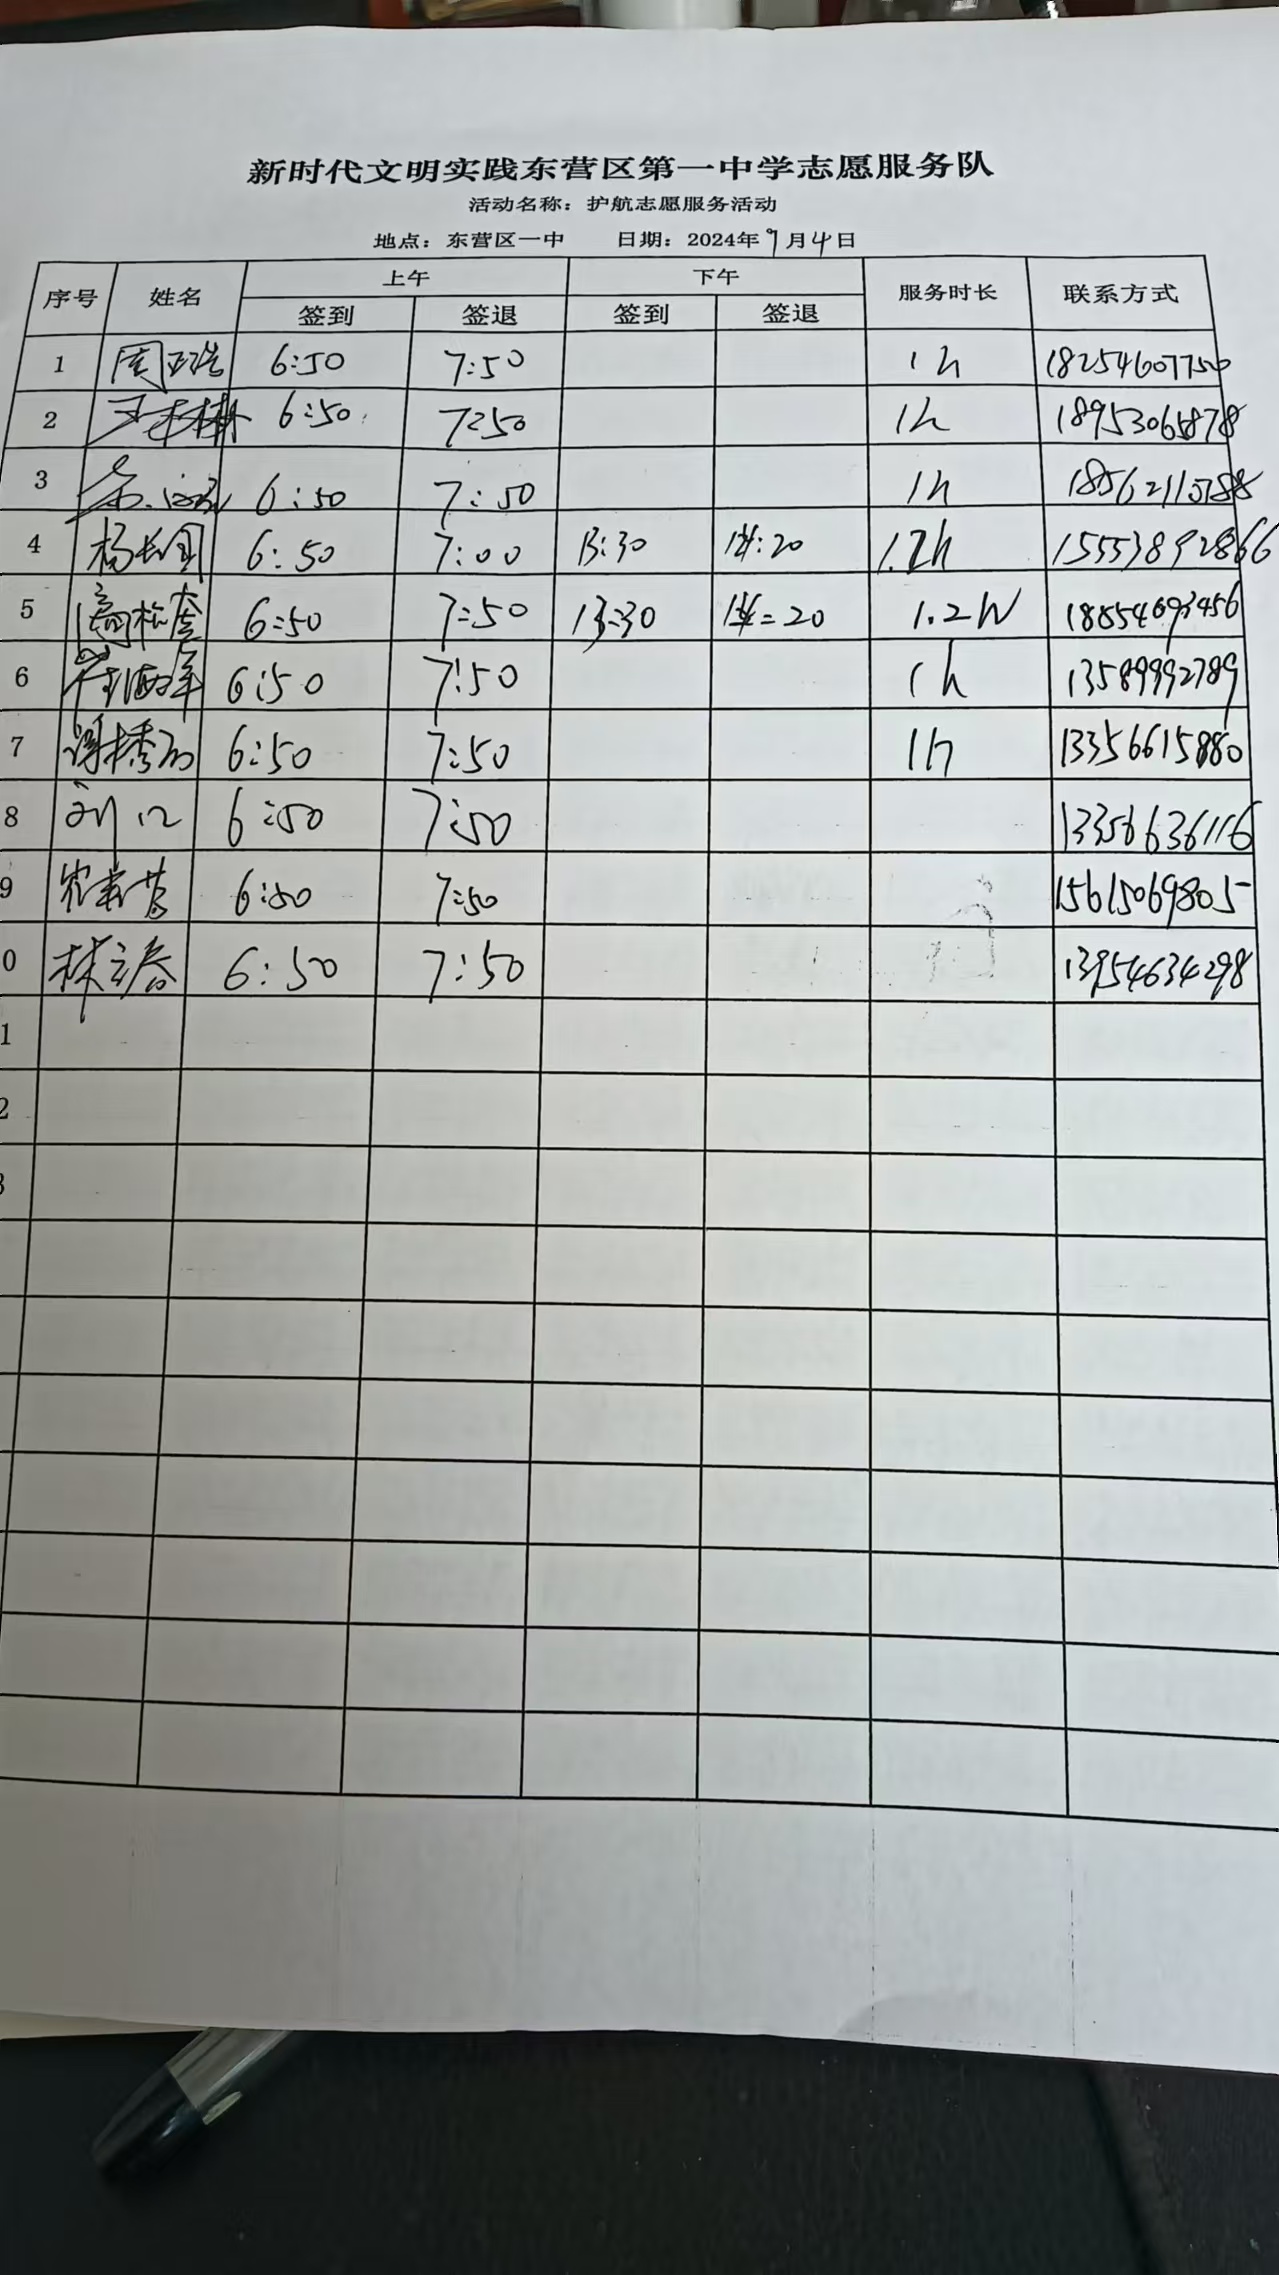 新时代文明实践东营区第一中学志愿服务队
活动名称：护航志愿服务活动
地点：东营区一中 日期：2024年9月4日
序号 姓名 上午 下午 服务时长 联系方式
签到 签退 签到 签退
1 6:50 7:50 1h 18254607750
2 6:50 7:50 1h 18953065878
3 6:50 7:50 1h
4 杨长国 6:50 7:00 13:30 14:20 1.2h 15553892866
5 6:50 7:50 13:30 14:20 1.2h 18854693456
6 崔海军 6:50 7:50 1h 13589992789
7 6:50 7:50 1h 13356615880
8 刘江 6:50 7:50 13356636116
9 6:50 7:50 15615069805
0 林立春 6:50 7:50 13954634298
1
2
3